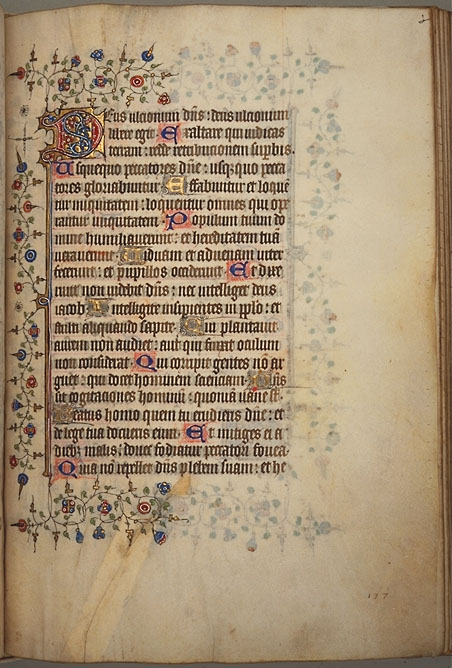 Deus ulcionum dn̄s: deus ulcionum
libere egit. Exaltare qui iudicas
terram: redde retribucionem suꝑbis.
Usquequo peccatores dn̄e: usq̄quo pecca
tores gloriabuntur. Effabuntur et loquē
tur iniquitatem: loquentur omnes qui ope
rantur iniquitatem. Populum tuum do
mine humiliauerunt: et hereditatem tuā
uexauerunt. Uiduam et aduenam inter
fecerunt: et pupillos occiderunt. Et dixe
runt non uidebit dn̄s: nec intelliget deus
iacob. Intelligite insipientes in pplo: et
stulti aliquando sapite. Qui plantauit
aurem non audiet: aut qui finxit oculum
non considerat. Qui corripit gentes nō ar
guet: qui docet hominem scienciam. Dn̄s
scit cogitaciones hominū: quoniā uane st̄.
Beatus homo quem tu erudieris dn̄e: et
de lege tua docueris eum. Et mitiges ei a
dieb; malis: donec fodiatur peccatori fouea.
Quia nō repellet dn̄s plebem suam: et he